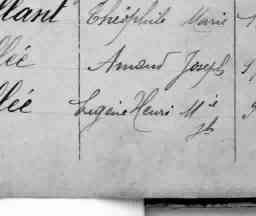 llant Théophile Marie
lée Amand Joseph
lée Eugène Henri M ie
Jh